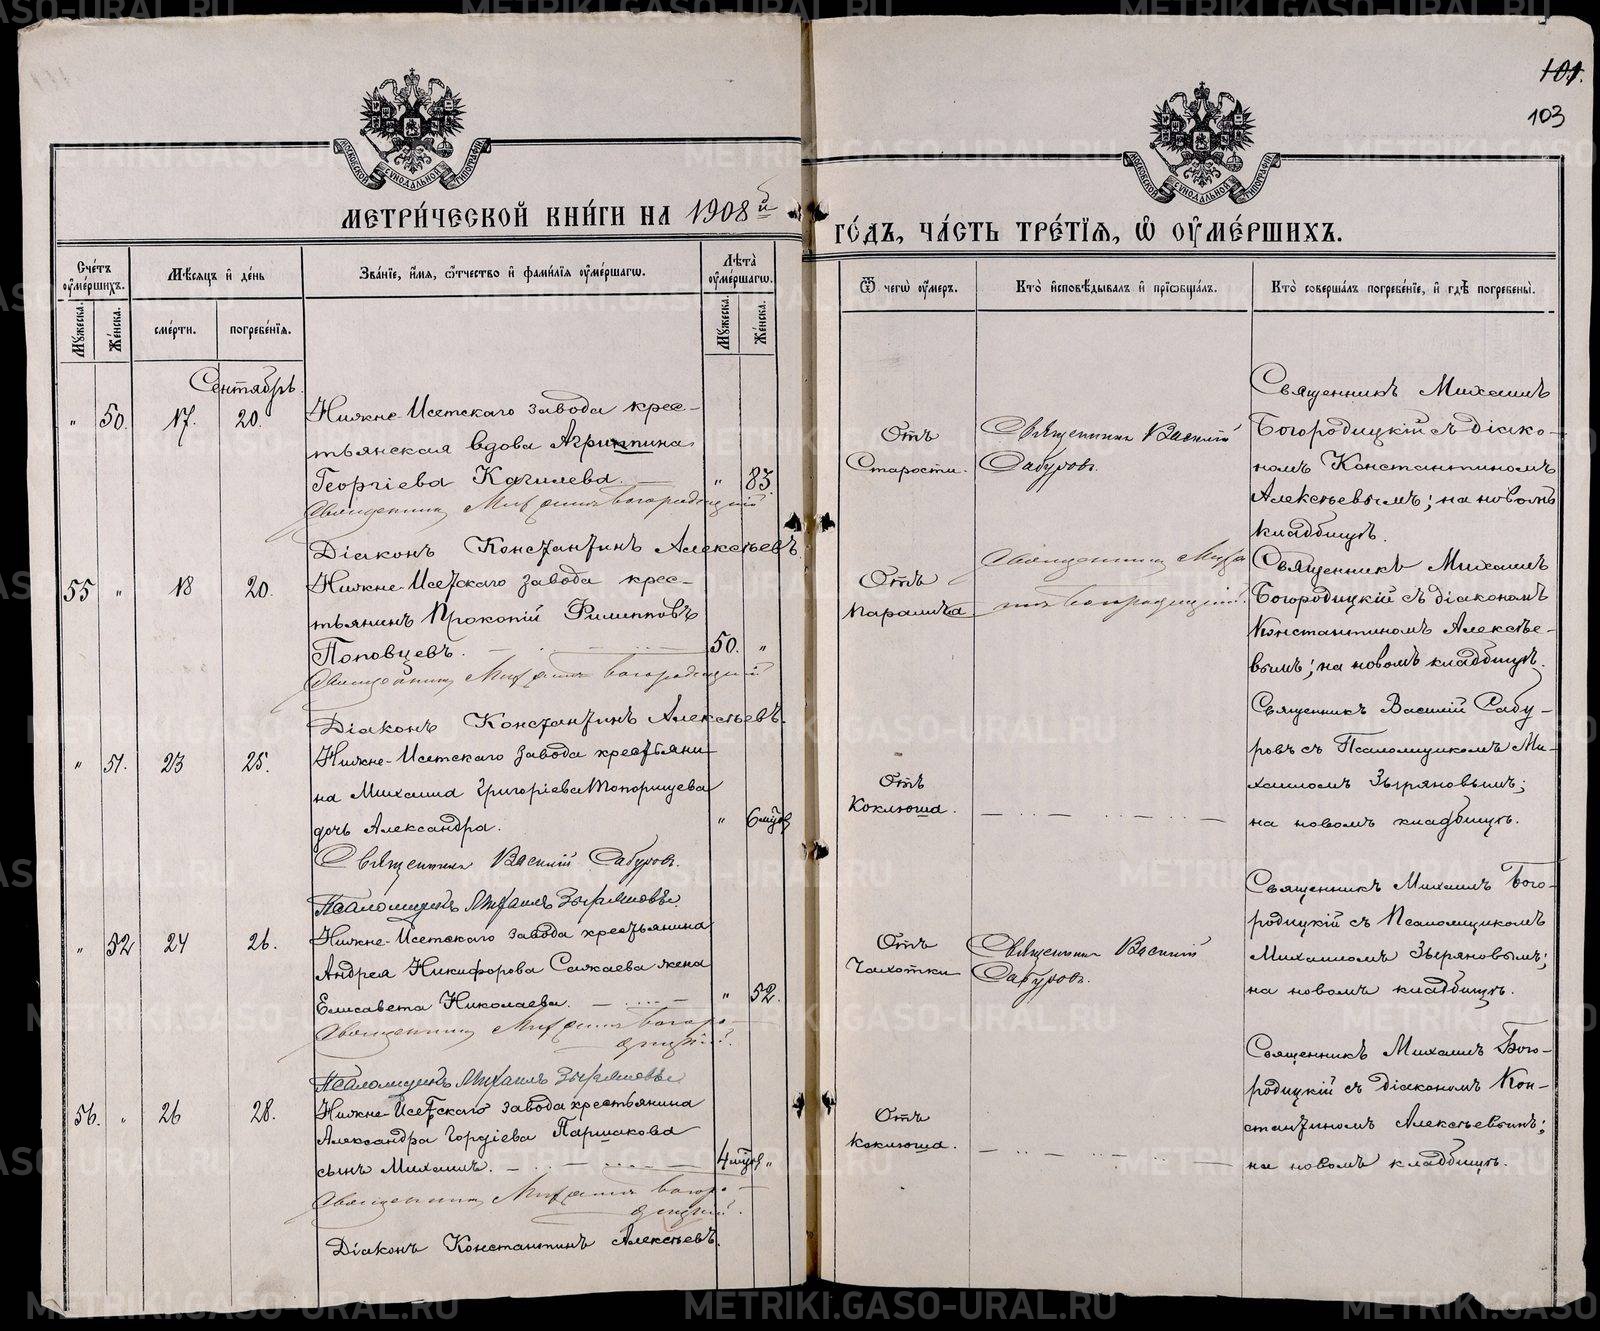 101.
103
МОСКОВСКОЙ СѴНОДАЛЬНОЙ ТИПОГРАФІИ
МОСКОВСКОЙ СѴНОДАЛЬНОЙ ТИПОГРАФІИ
МЕТРИ́ЧЕСКОЙ КНИ́ГИ НА 1908й
ГО́ДЪ, ЧА́СТЬ ТРЕ́ТІѦ, Ѡ҆ ОУ҆МЕ́РШИХЪ.
Сче́тъ оу҆ме́ршихъ.
Мѣ́сяцъ и҆ де́нь
Зва́нїе, и҆́мя, ѻ҆́тчество и҆ фами́лїя оу҆ме́ршагѡ.
Лѣ́та оу҆ме́ршагѡ.
Ѿ чегѡ̀ оу҆́меръ.
Кто̀ и҆сповѣ́дывалъ и҆ прїѡбща́лъ.
Кто̀ соверша́лъ погребе́нїе, и҆ гдѣ̀ погребены̀.
Мꙋ́жеска.
Же́нска.
сме́рти.
погребе́нїя.
Мꙋ́жеска.
Же́нска.
Сентябрь.
" 50. 17. 20.
Нижне-Исетскаго завода крес-
тьянская вдова Агриппина
Георгіева Качилева. " 83.
Священникъ Михаилъ Богородицкій
Діаконъ Константинъ Алексѣевъ.
Отъ
Старости.
Священникъ Василій
Сабуровъ.
Священникъ Михаилъ
Богородицкій съ діако-
номъ Константиномъ
Алексѣевымъ; на новомъ
кладбищѣ.
55 " 18 20.
Нижне-Исетскаго завода крес-
тьянинъ Прокопій Филипповъ
Поповцевъ. 50. "
Священникъ Михаилъ Богородицкій
Діаконъ Константинъ Алексѣевъ.
Отъ
паралича
Священникъ Миха
илъ Богородицкій.
Священникъ Михаилъ
Богородицкій съ діакономъ
Константиномъ Алексѣе-
вымъ; на новомъ кладбищѣ.
" 51. 23 25.
Нижне-Исетскаго завода крестьяни-
на Михаила Григоріева Топорищева
дочь Александра. " 6 мѣс.
Священникъ Василій Сабуровъ.
Псаломщикъ Михаилъ Зыряновъ.
Отъ
Коклюша.
Священникъ Василій Сабу-
ровъ съ Псаломщикомъ Ми-
хаиломъ Зыряновымъ;
на новомъ кладбищѣ.
" 52 24 26.
Нижне-Исетскаго завода крестьянина
Андрея Никифорова Сажаева жена
Елисавета Николаева. " 52.
Священникъ Михаилъ Богоро-
дицкій.
Псаломщикъ Михаилъ Зыряновъ
Отъ
Чахотки
Священникъ Василій
Сабуровъ.
Священникъ Михаилъ Бого-
родицкій съ Псаломщикомъ
Михаиломъ Зыряновымъ;
на новомъ кладбищѣ.
56. " 26 28.
Нижне-Исетскаго завода крестьянина
Александра Гордіева Паршакова
сынъ Михаилъ. 4 мѣс. "
Священникъ Михаилъ Богоро-
дицкій.
Діаконъ Константинъ Алексѣевъ.
Отъ
коклюша.
Священникъ Михаилъ Бого-
родицкій съ діакономъ Кон-
стантиномъ Алексѣевымъ;
на новомъ кладбищѣ.
METRIKI.GASO-URAL.RU